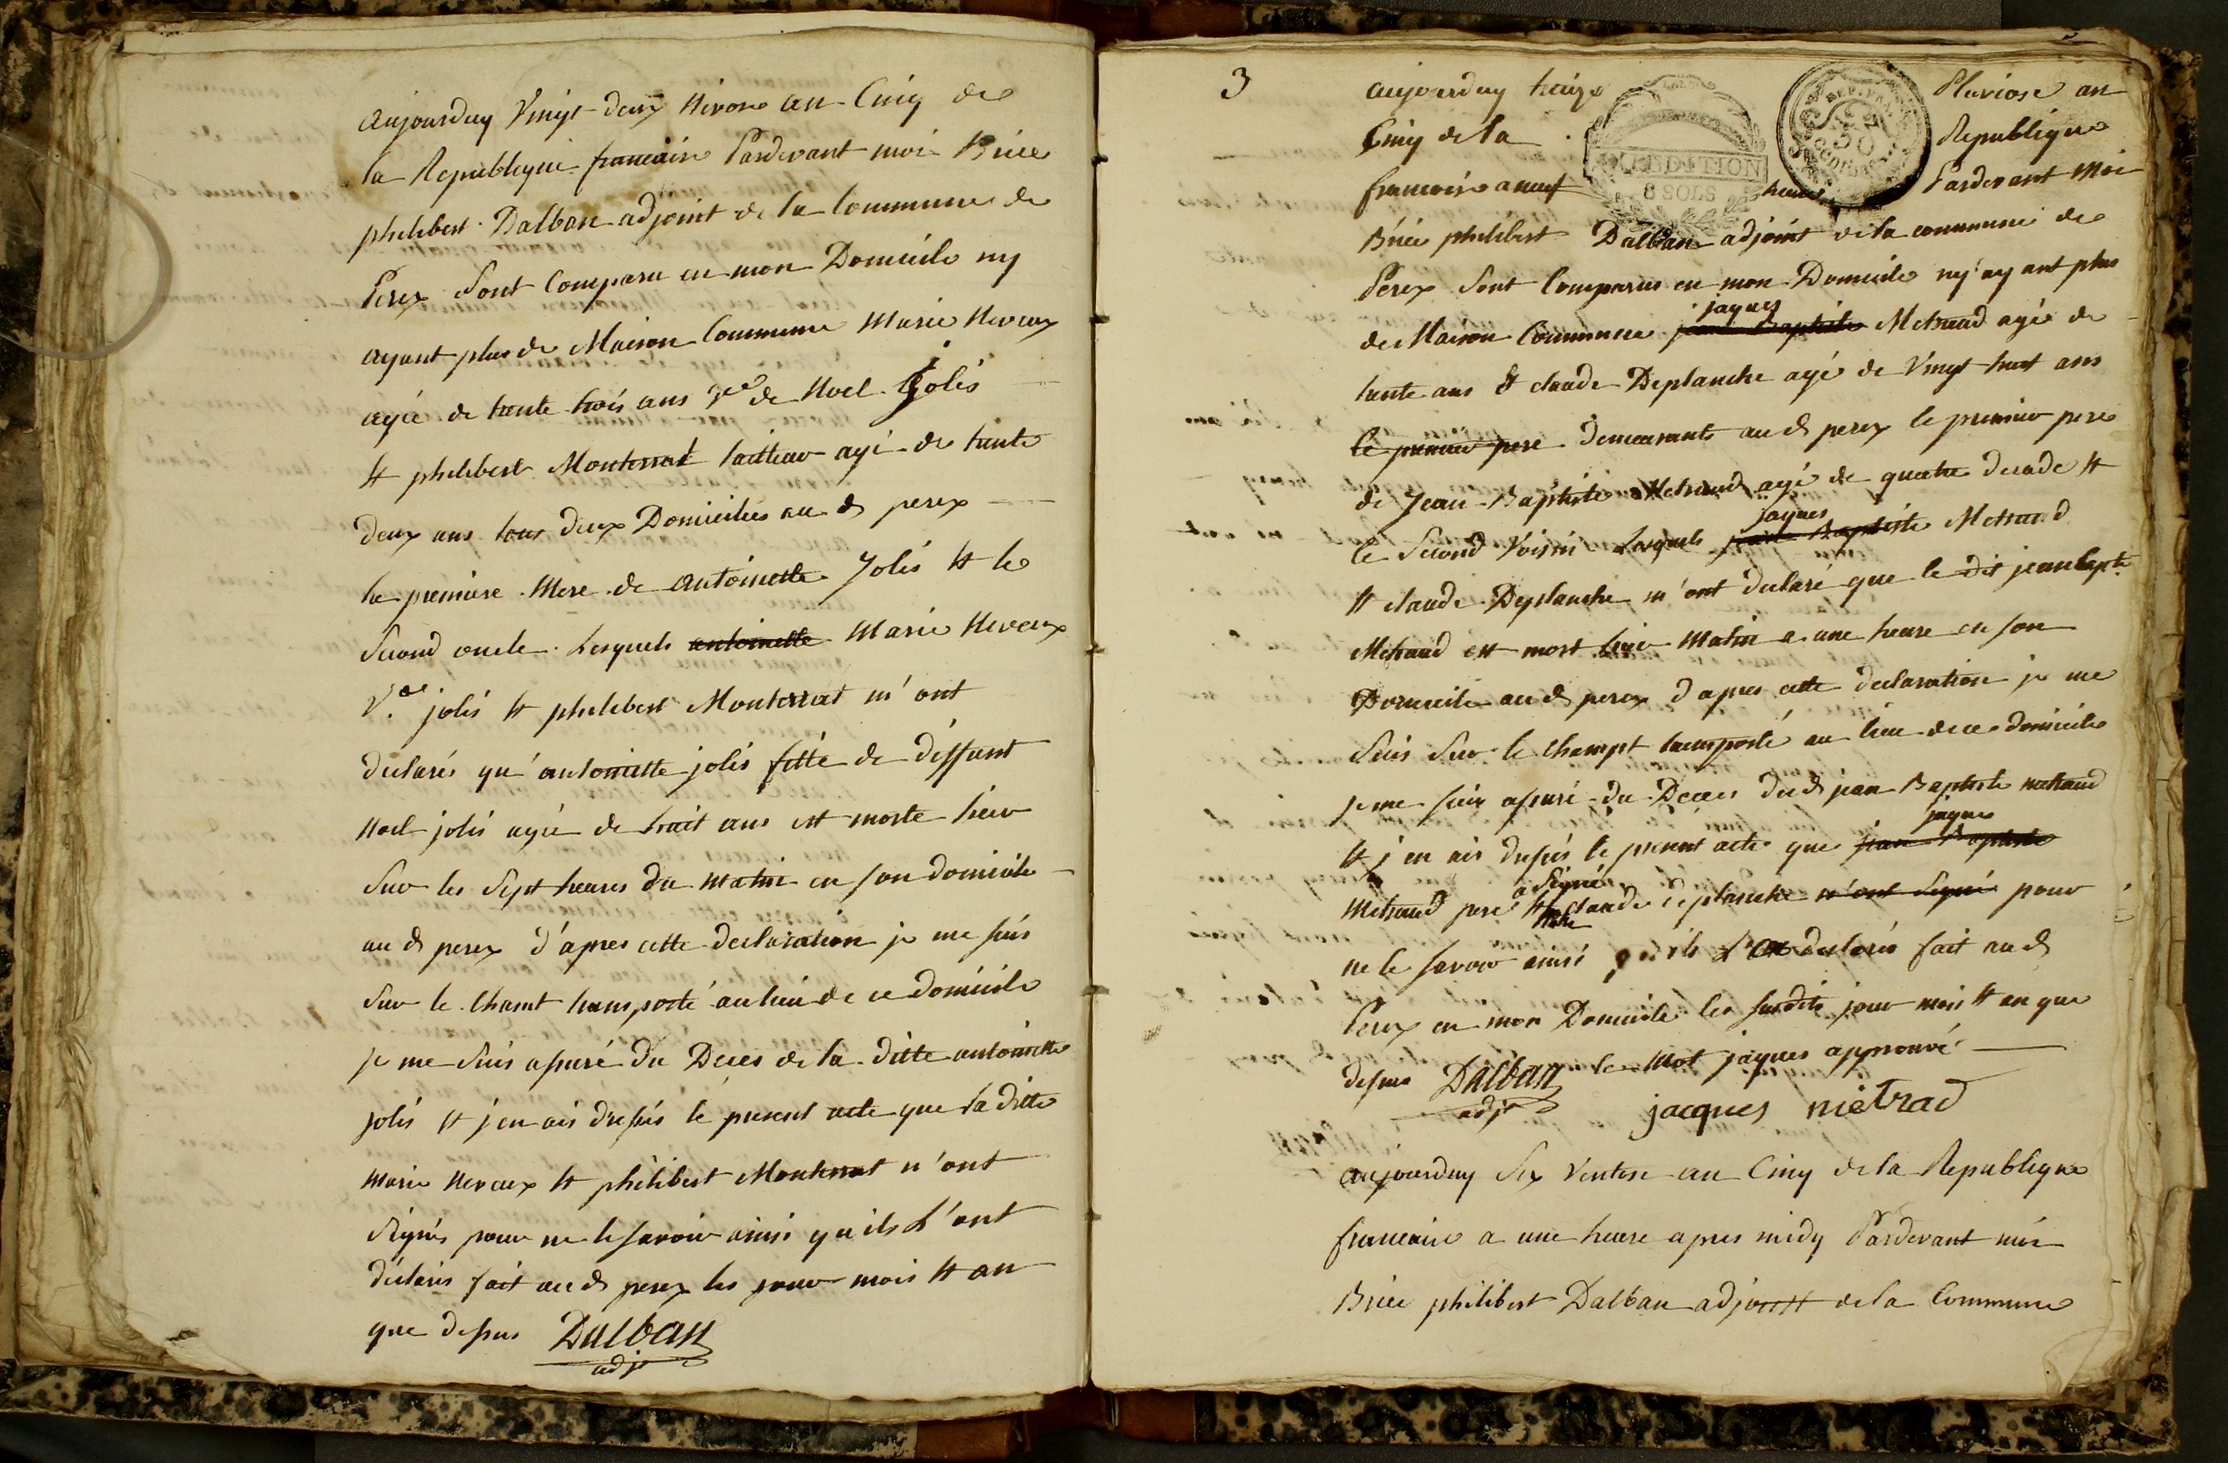 aujourduy Vingt deux Nivose an Cinq de
la Republique francaise Pardevant moi Brice
philibert Dalban adjoint de la Commune de
Perex Sont Comparu en mon Domicile ny
ayant plus de Maison Commune Marie Neveux
agée de trente trois ans Ve de Noel Jolis
et philibert Monterrat tailleur agé de trente
deux ans tous deux Domiciliés au d perex
la premiere Mere de antoinette Jolis et le
Second oncle Lesquels antoinette Marie Neveux
Ve jolis et philibert Monterrat m'ont
declarés qu'antoinette jolis fille de deffunt
Noel jolis agée de huit ans est morte hier
Sur les Sept heures du matin en son domicile
au d perex d'apres cette declaration je me suis
Sur le Chamt transporté au lieu de ce domicile
je me Suis assuré du Deces de la ditte antoinette
jolis et j'en ais dressés le present acte que la ditte
Marie Neveux et philibert Monterrat n'ont
Signés pour ne le Savoir ainsi qu'ils L'ont
déclarés fait au d perex les jour mois et an
que dessus Dalban
adjt
3
aujourduy treize Pluviose an
Cinq de la Republique
EXPEDITION
8 SOLS
REP. FRA.
50
francaise a neuf heures Pardevant moi
Brice philibert Dalban adjoint de la commune de
Perex Sont Comparus en mon Domicile ny ayant plus
jaques
de Maison Commune jean Baptiste Metraud agé de
trente ans & claude Deplanche agé de Vingt huit ans
le premier pere demeurants au d perex le premier pere
de Jean Baptiste Metraud agé de quatre decade et
jaques
le Second Voisin Lesquels jean Baptiste Metraud
et claude Deplanche m'ont declaré que le dit jean bapte
Metraud est mort hier matin a une heure en son
Domicile au d perex d'apres cette declaration je me
Suis Sur le Champt transporté au lieu de ce domicile
je me suis assuré du Deces du d jean Baptiste metraud
jaques
et j'en ais dressés le present acte que jean Baptiste
a Signé
Metraud pere et claude deplanche n'ont Signé pour
ne le savoir ainsi declarés fait au d
Perex en mon Domicile les susdits jour mois et an que
dessus Dalban le mot jaques approuvé
adjt jacques métrad
aujourduy Six Ventose an Cinq de la Republique
francaise a une heure apres midy Pardevant moi
Brice philibert Dalban adjoint de la Commune